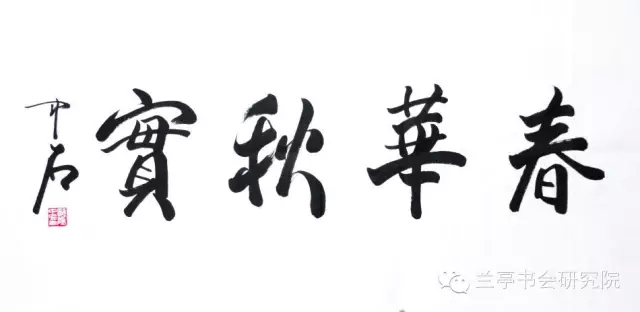 春華秋實
中石
兰亭书会研究院